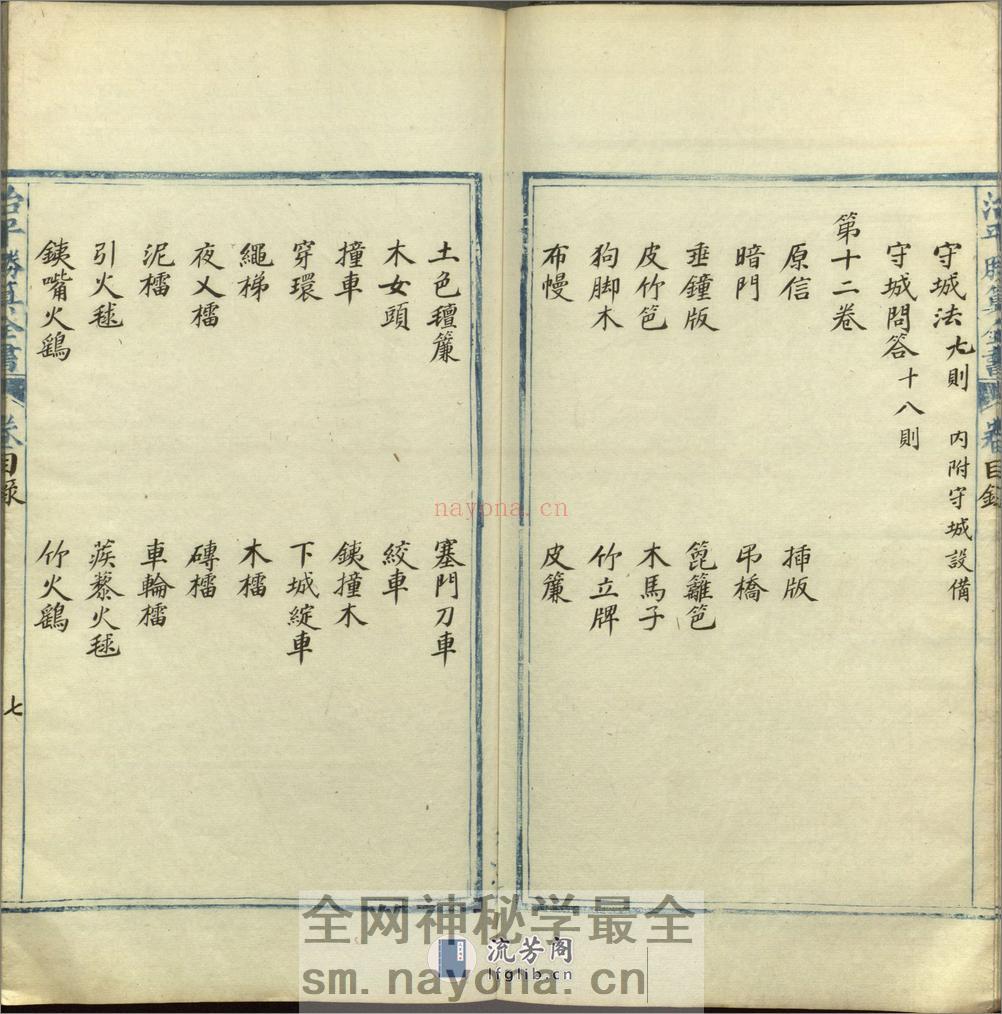 守城法九則 內附守城設備
守城問答十八則
第十二卷
原信 插版
暗門 吊橋
垂鐘版 篦籬笆
皮竹笆 木馬子
狗脚木 竹立牌
布幔 皮簾
土色氊簾 塞門刀車
木女頭 絞車
撞車 鐵撞木
穿環 下城綻車
繩梯 木檑
夜乂檑 磚檑
泥檑 車輪檑
引火毬 蒺藜火毬
鐵嘴火鷂 竹火鷂
治平勝算全書 卷 目錄 七
治平勝算全書 卷 目錄
nayona.cn
全网神秘学最全
流芳阁
lfglib.cn
sm.nayona.cn